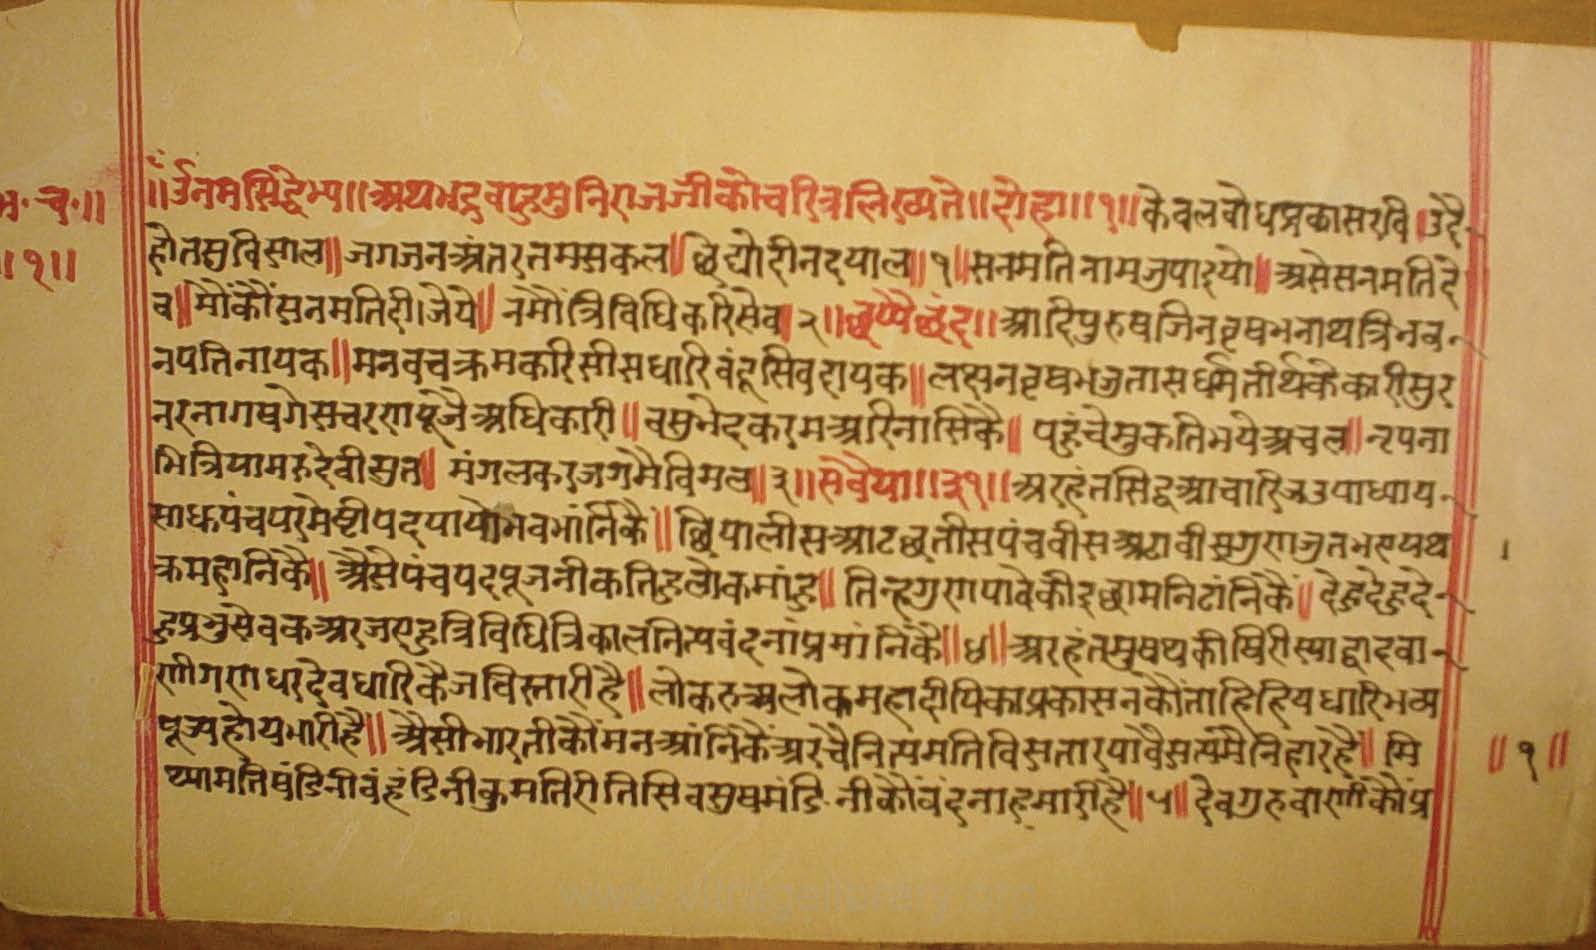 भ॰ च॰॥
॥१॥
॥ॐनमसिद्धेभ्यः॥अथभद्रवाहुमुनिराजजीकोचरित्रलिख्यते॥दोहा॥१॥केवलवोधप्रकासरवि।उदै-
होतसुविसाल॥जगजनअंतरतमसकल॥छिद्योदीनदयाल॥१॥सनमतिनामजुपाइयो॥असेसनमतिदे
व॥मोंकौंसनमतिदीजिये॥नमौंत्रिविधिकरिसेव॥२॥छप्पैछंद॥आदिपुरुषजिनवृषभनाथत्रिनव-
नपतिनायक॥मनवचक्रमकरिसीसधारिवंदूसिवदायक॥लक्षनवृषभजुतासधर्मतीर्थकेकारीसुर
नरनागषगेसचरणपूजैअधिकारी॥वसुभेदकरमअरिनासिकै॥पहुंचेमुकतिभयेअचल॥नृपना
भित्रियामरुदेवीसुत॥मंगलकरजगमैविमल॥३॥सवैया॥३१॥अरहंतसिद्धआचारिजउपाध्याय-
साधपंचपरमेष्टीपदपायोभवभांनिकै॥छियालीसआटछतीसपंचवीसअठावीसगुणजुतभव्यथ
क्रमहानिकै॥औसेपंचपदपूजनीकतिहुलोकमांहु॥तिन्हगुणपावेकीइछामनिठांनिकै॥देहुदेहुदे-
हुप्रभुसेवकअरजएहुत्रिविधित्रिकालनित्यवंदनांप्रमांनिकै॥४॥अरहंतमुषथकीषिरीस्याद्वादवा-
णीगणधरदेवधारिकैजविस्तारीहै॥लोकरुअलोकमहादीपिकाप्रकासनकौंताहिहियधारिभव्य
पूज्यहोयभारीहै॥औसीभारतीकौंमनआंनिकैअरचैनित्यमतिविसतारपावैसत्यमैनिहारहै॥मि
थ्यामतिषंडिनीवंहंडिनीकुमतिरीतिसिवसुषमंडिनीकौंवंदनाहमारीहै॥५॥देवगुरुवाणीकौंप्र
॥१॥